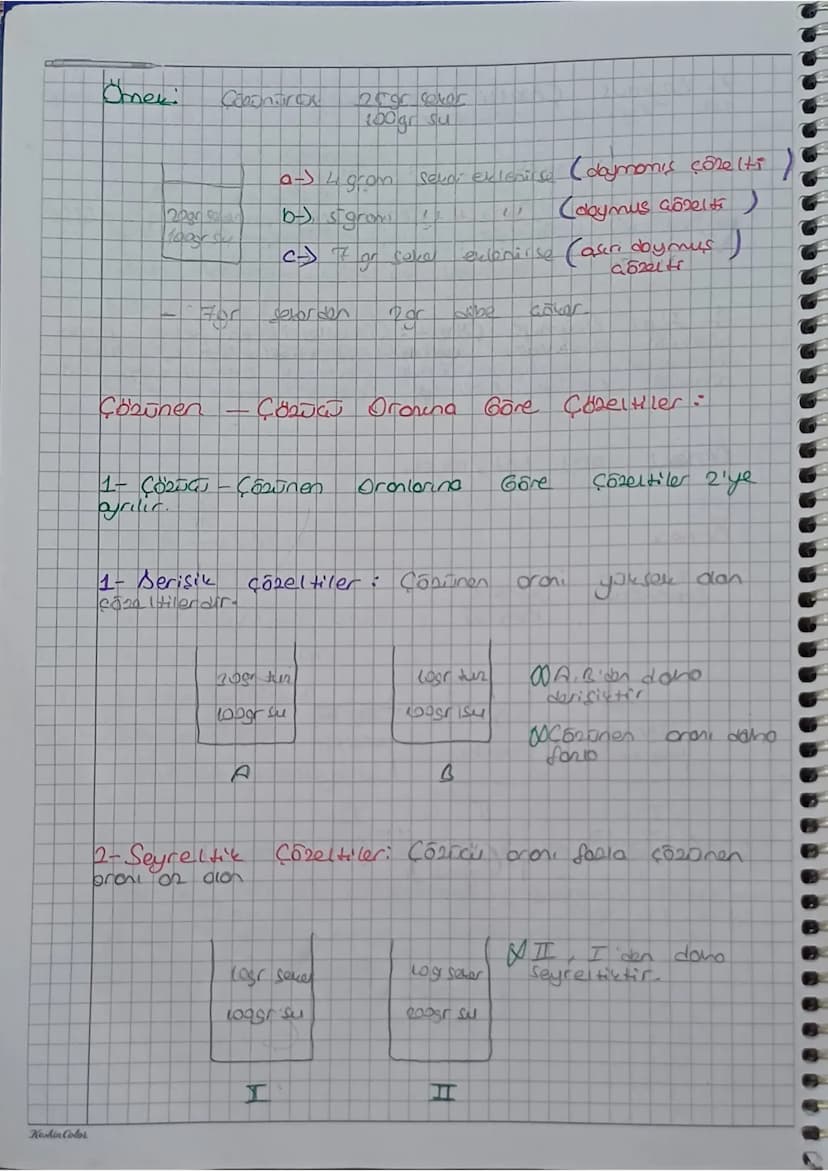 Örnek: Çözünürlük 25gr şeker
100gr su
20gr şeker
100gr su
a-> 4 gram şeker eklenirse (doymamış çözelti)
b-> 5 gram " " (doymuş çözelti)
c-> 7 gr şeker eklenirse (aşırı doymuş
çözelti)
- 7gr şekerden 2gr dibe çöker.
Çözünen - Çözücü Oranına Göre Çözeltiler:
1- Çözücü - Çözünen Oranlarına Göre Çözeltiler 2'ye
ayrılır.
1- Derişik çözeltiler: Çözünen oranı yüksek olan
çözeltilerdir.
20gr tuz
100gr su
A
10gr tuz
100gr su
B
A, B'den daha
derişiktir
Çözünen oranı daha
fazla
2- Seyreltik Çözeltiler: Çözücü oranı fazla çözünen
oranı az olan
10gr şeker
100gr su
I
10g şeker
200gr su
II
II, I'den daha
seyreltiktir.
Keskin Color